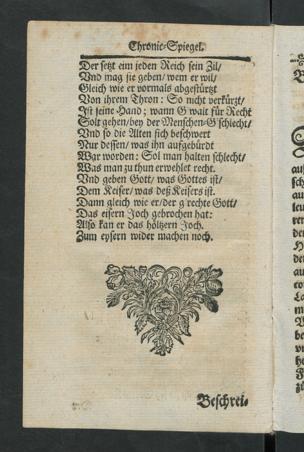 Chronic-Spiegel.
Der setzt eim jeden Reich sein Zil/
Vnd mag sie geben/ wem er wil/
Gleich wie er vormals abgestürtzt
Von ihrem Thron: So nicht verkürzt/
Ist seine Hand; wann G'walt für Recht
Solt gehen/ bey der Menschen G'schlecht/
Vnd so die Alten sich beschwert
Nur dessen/ was ihn aufgebürdt
War worden: Sol man halten schlecht/
Was man zu thun erwehlet recht.
Vnd geben Gott/ was Gottes ist/
Dem Keiser/ was deß Keisers ist.
Dann gleich wie er/ der g'rechte Gott/
Das eisern Joch gebrochen hat:
Also kan er das höltzern Joch.
Zum eysern wider machen noch.
Beschrei-